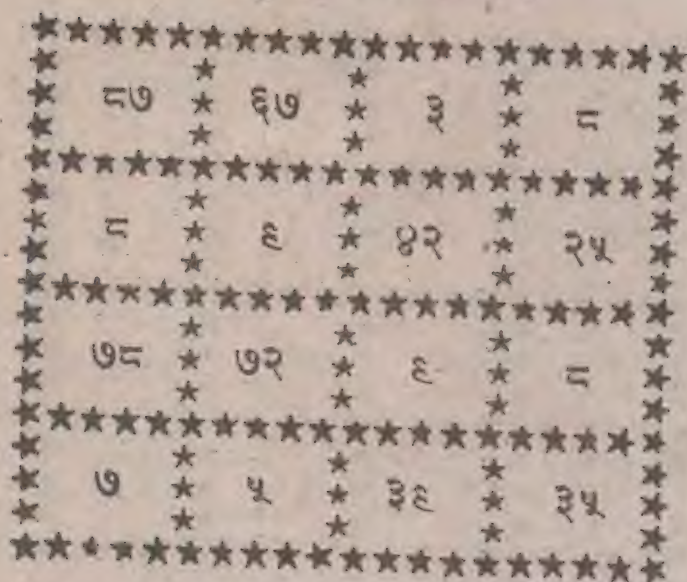 ८७ ६७ ३ ८
८ ९ ४२ २५
७८ ७२ ९ ८
७ ५ ३९ ३५